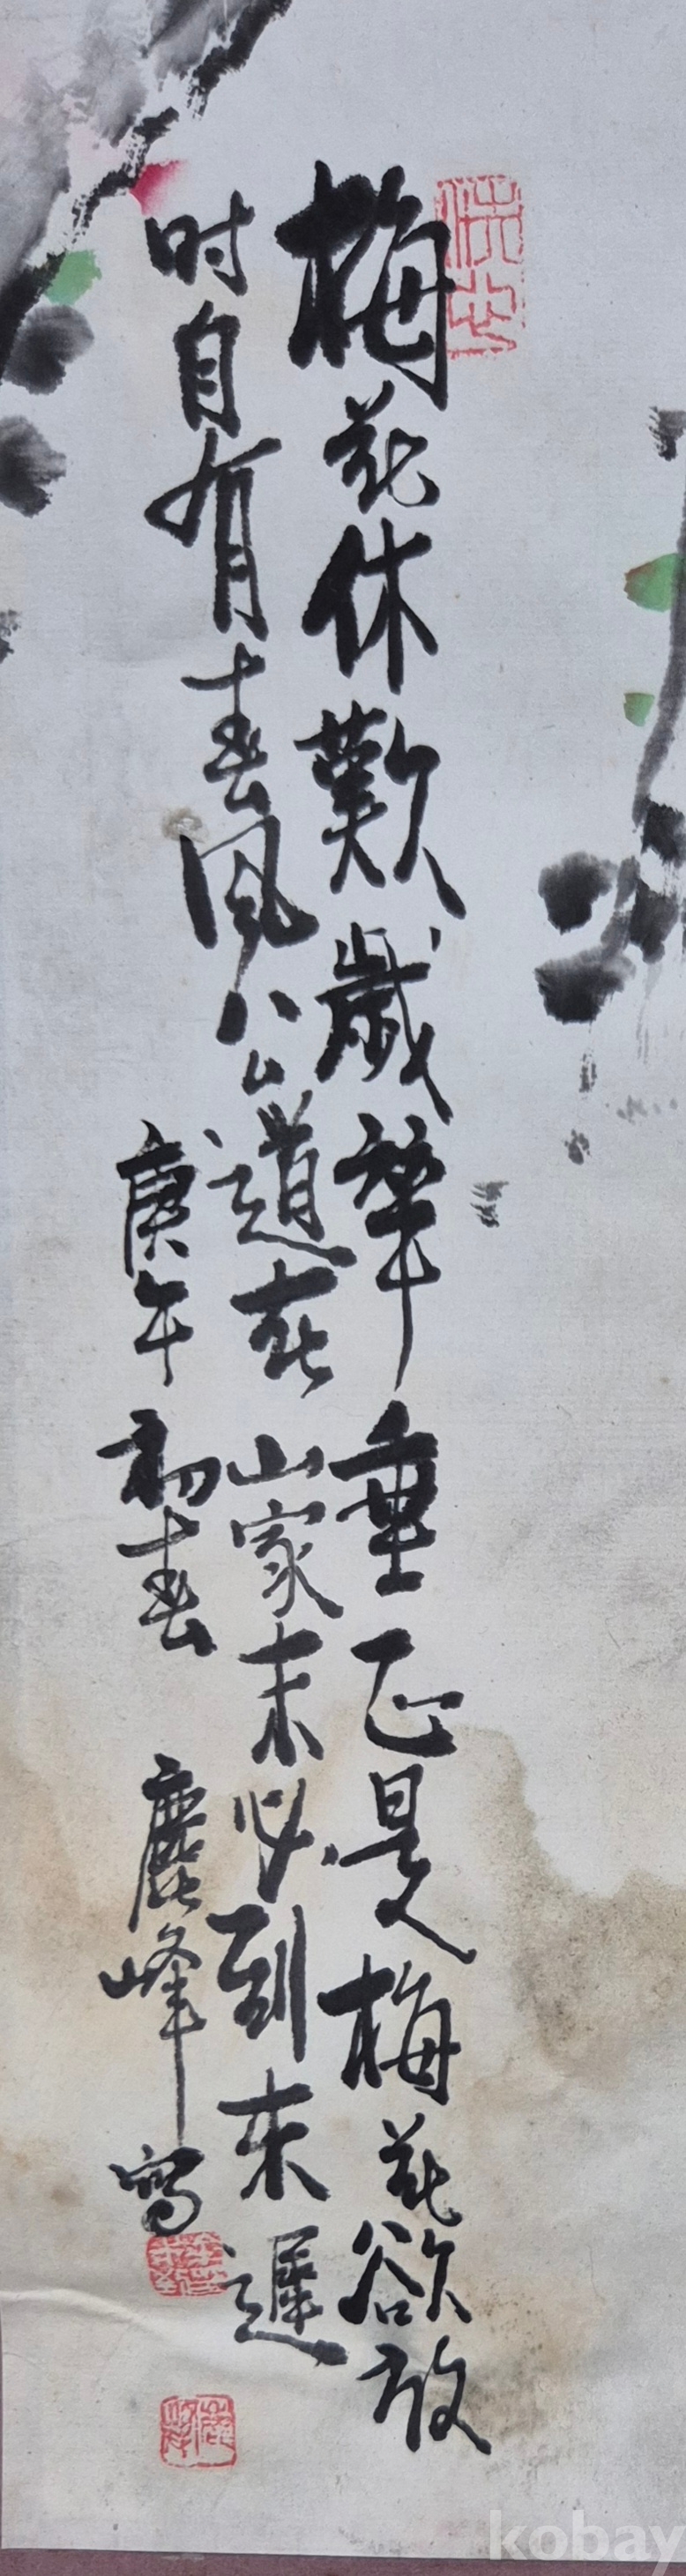 梅花休歎歲華重正是梅花欲放
时自有春风公道在山家未必到来遲
庚午初春 麓峰寫
kobay